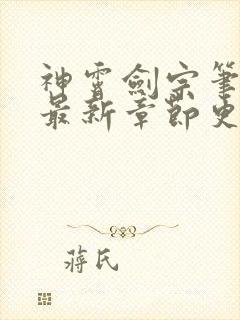 神霄劍宗筆
最新章節史
蔣氏